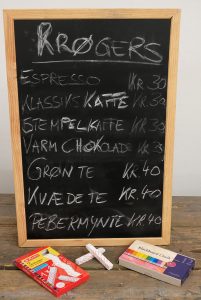 KRØGERS
ESPRESSO KR.30
KLASSISK KAFFE KR.30
STEMPELKAFFE KR.30
VARM CHOKOLADE KR.35
GRØN TE KR.40
KVÆDE TE KR.40
PEBERMYNTE KR.40
Blackboard Chalk